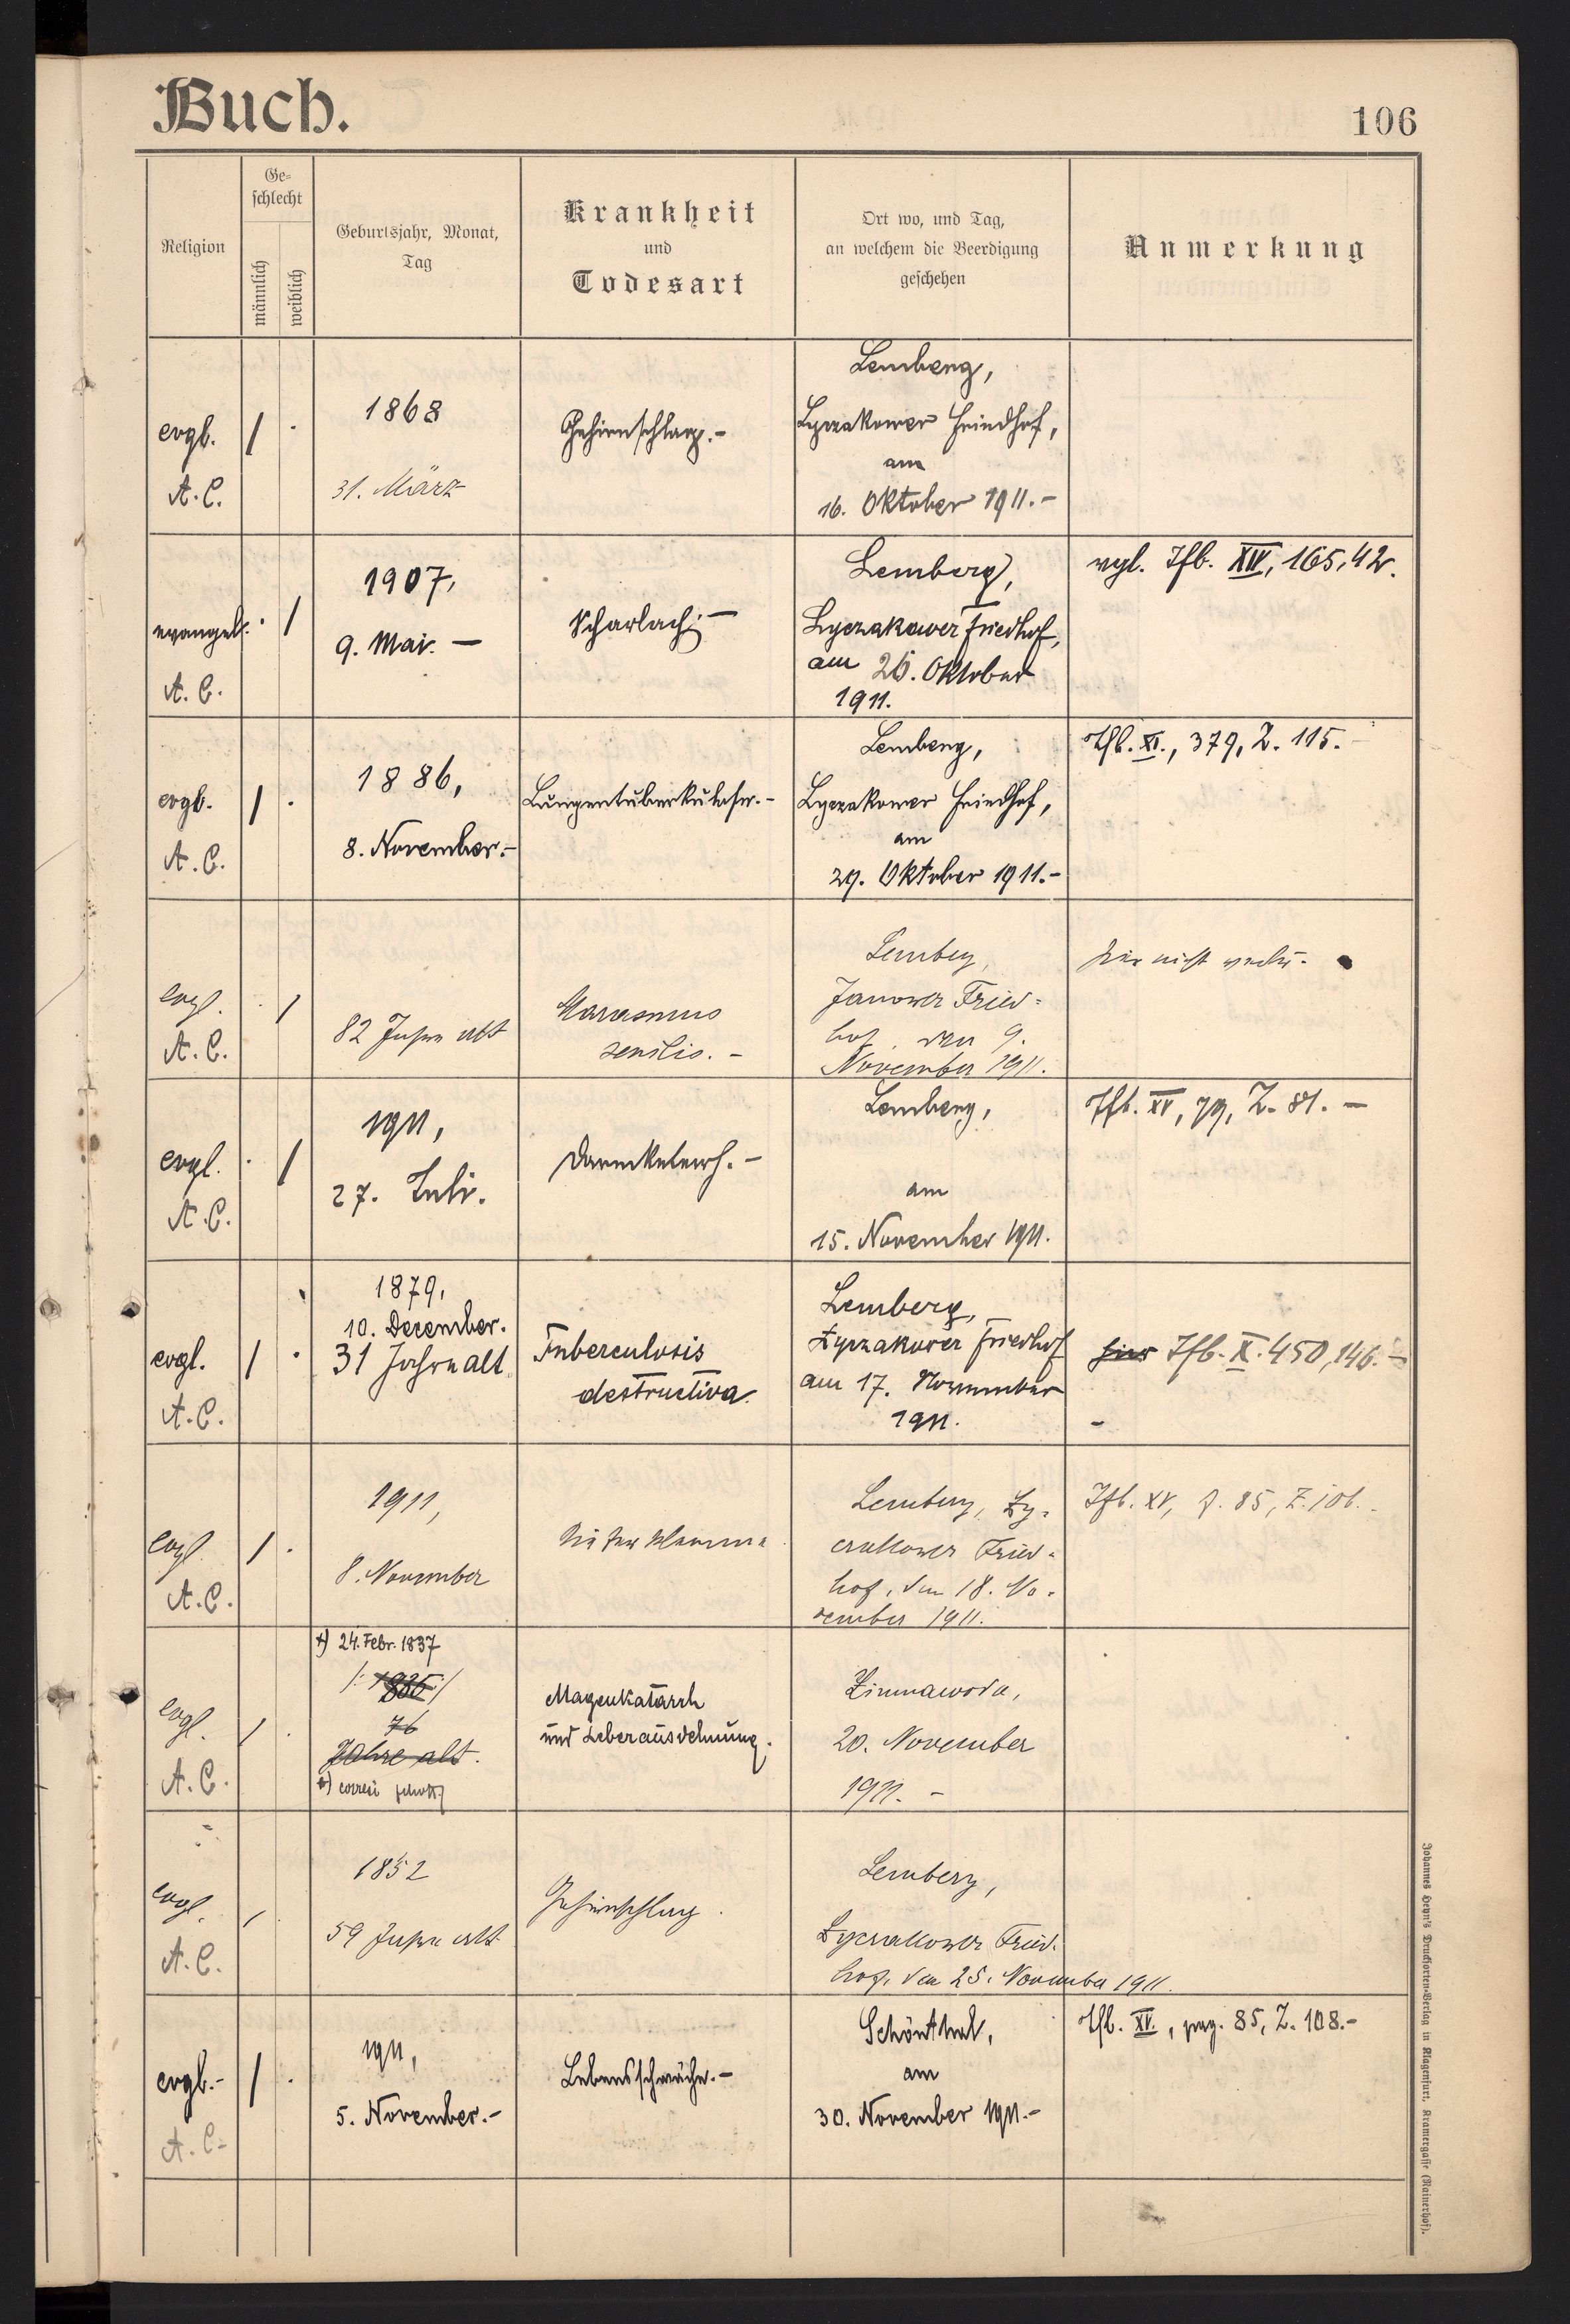 Buch.
106
Religion
Ge=
schlecht
männlich
weiblich
Geburtsjahr, Monat,
Tag
Krankheit
und
Todesart
Ort wo, und Tag,
an welchem die Beerdigung
geschehen
Anmerkung
evgl.
A. C.
/ .
1868
31. März
Gehirnschlag.-
Lemberg,
Lyczakower Friedhof,
am
16. Oktober 1911.-
evangel.
A. C.
. /
1907,
9. Mai. —
Scharlach. —
Lemberg,
Lyczakower Friedhof,
am 26. Oktober
1911.
vgl. Tfb. XIV, 165, 42.
evgl.
A. C.
/ .
1886,
8. November.-
Lungentuberkulose.-
Lemberg,
Lyczakower Friedhof,
am
29. Oktober 1911.-
Tfb. XI., 379, Z. 115.-
evgl.
A. C.
. /
82 Jahre alt
Marasmus
senilis. -
Lemberg,
Janower Fried=
hof, den 9.
November 1911.
hier nicht
evgl.
A. C.
. /
1911,
27. Juli.
Darmkatarrh. —
Lemberg,
am
15. November 1911.
Tfb. XV, 79, Z. 81. —
evgl.
A. C.
/ .
1879,
10. December.
31 Jahre alt
Tuberculosis
destructiva.
Lemberg,
Lyczakower Friedhof
am 17. November
1911.
hier Tfb. X. 450, 146. -
-
evgl.
A. C.
/ .
1911,
8. November
Lemberg, Ly=
czakower Fried=
hof, den 18. No=
vember 1911.
Tfb. XV, p. 85, Z. 106.
evgl.
A. C.
/ .
*) 24. Febr. 1837
76
Jahre alt.
*)
Magenkatarrh
und Leberausdehnung.
Zimnawoda,
20. November
1911. -
evgl.
A. C.
/
1852
59 Jahre alt
Gehirnschlag.
Lemberg,
Lyczakower Fried=
hof, den 25. November 1911.
evgl.-
A. C.-
/ .
1911,
5. November.-
Lebensschwäche.-
Schönthal,
am
30. November 1911.-
Tfb. XV., pag. 85, Z. 108.-
Johannes Heyn's Drucksorten-Verlag in Klagenfurt, Kramergasse (Rainerhof).